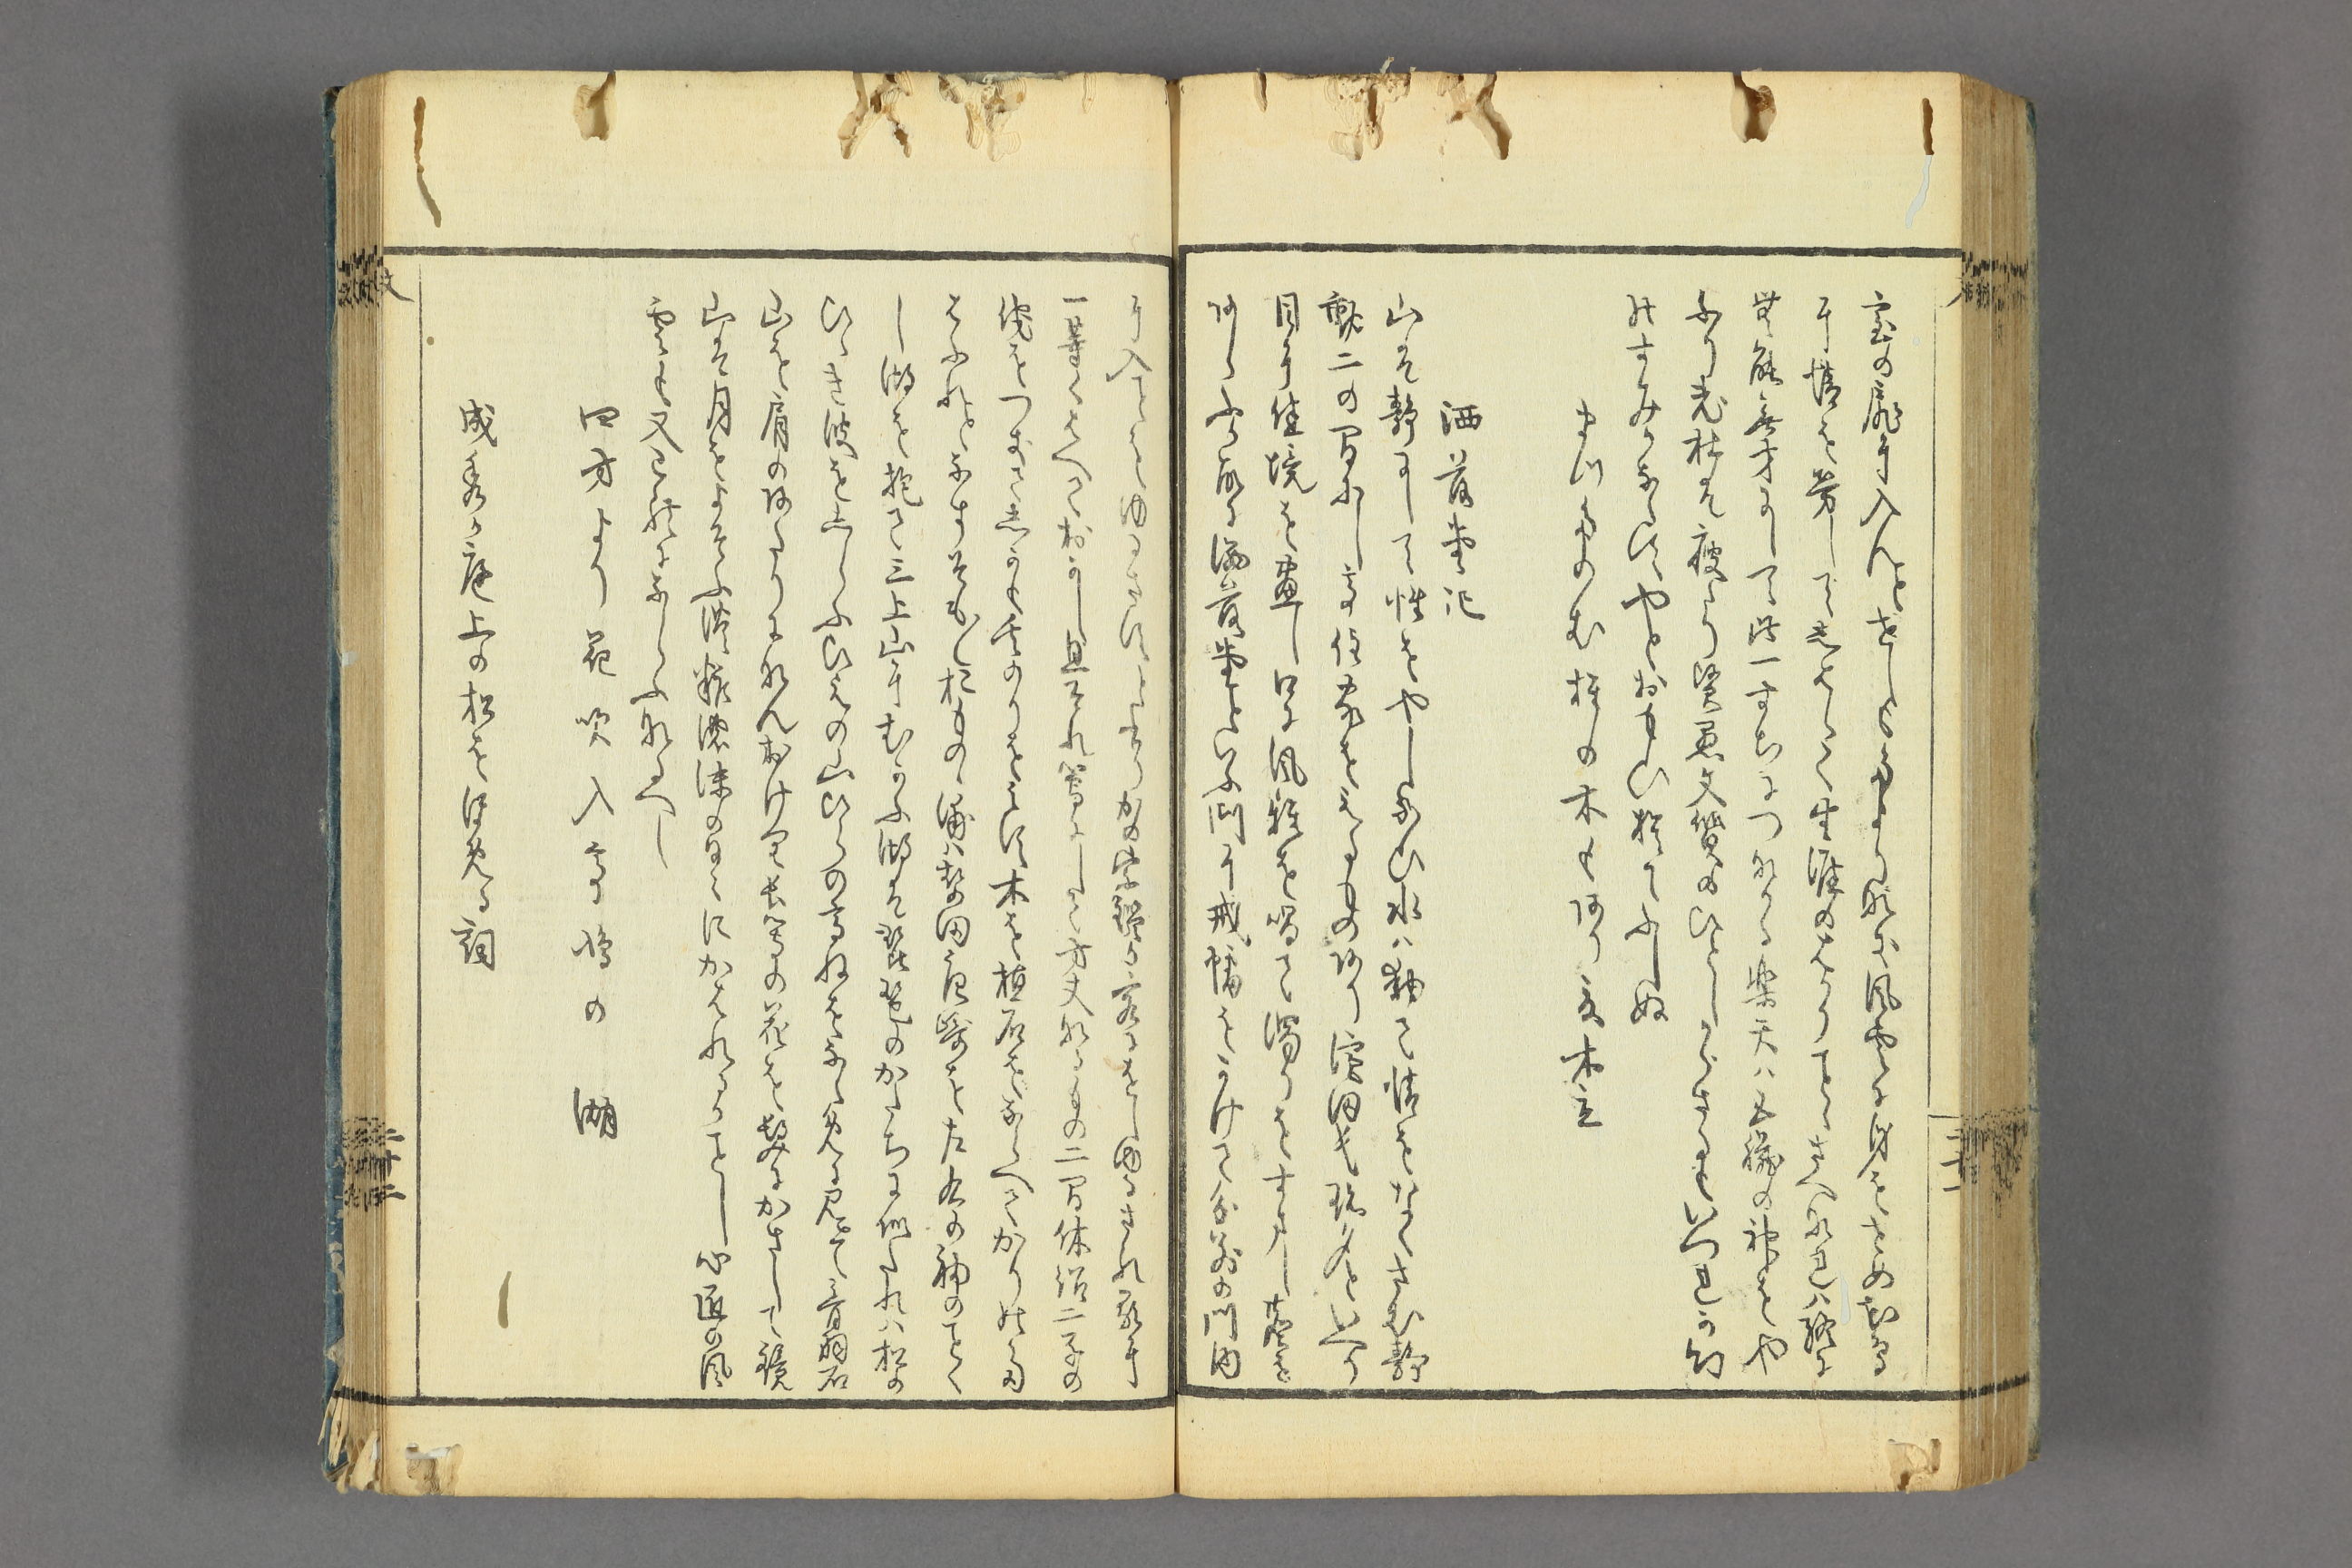 室の扉に入んとせしもたとりなき風雲に身をせめ花鳥
に情を労して志はらく生涯のはかりことゝさへなれは終に
無能無才にして此一すちにつなかる楽天ハ五臓の神をや
ふり老杜は痩たり賢愚文質のひとしからさるもいつれか幻
のすみかならすやとおもひ捨てふしぬ
まつたのむ椎の木もあり夏木立
洒落堂記
山は静にして性をやしなひ水ハ動て情をなくさむ静
動二の間にして住家をえるものあり濱田氏珍夕といへり
目に佳境を尽し口に風雅を唱て濁りをすまし塵を
あらふ故に洒落堂といふ門に戒幡をかけて分別の門内
に入ことをゆるさすとかけりかの宗鑑か客にをしゆるされ歌に
一等くはへておかし且それ簡にして方丈なるもの二間休紹二子の
侘をつきて志かも其のりをみす木を植石をならへてかりのた
はふれとなすそもそも於ものゝ浦ハ勢田唐崎を左右の袖のことく
し湖を抱て三上山にむかふ湖は琵琶のかたちに似たれハ松の
ひゝき波をしらふひえの山ひらの高ねをなゝめに見て音羽石
山を肩のあたりになんおけり長等の花を髪にかさして鏡
山は月をよそふ淡粧濃抹の日々にかはれるかことし心匠の風
雲も又これにならふなるへし
四方より花吹入て鳰の湖
成秀か庭上の松をほむる詞